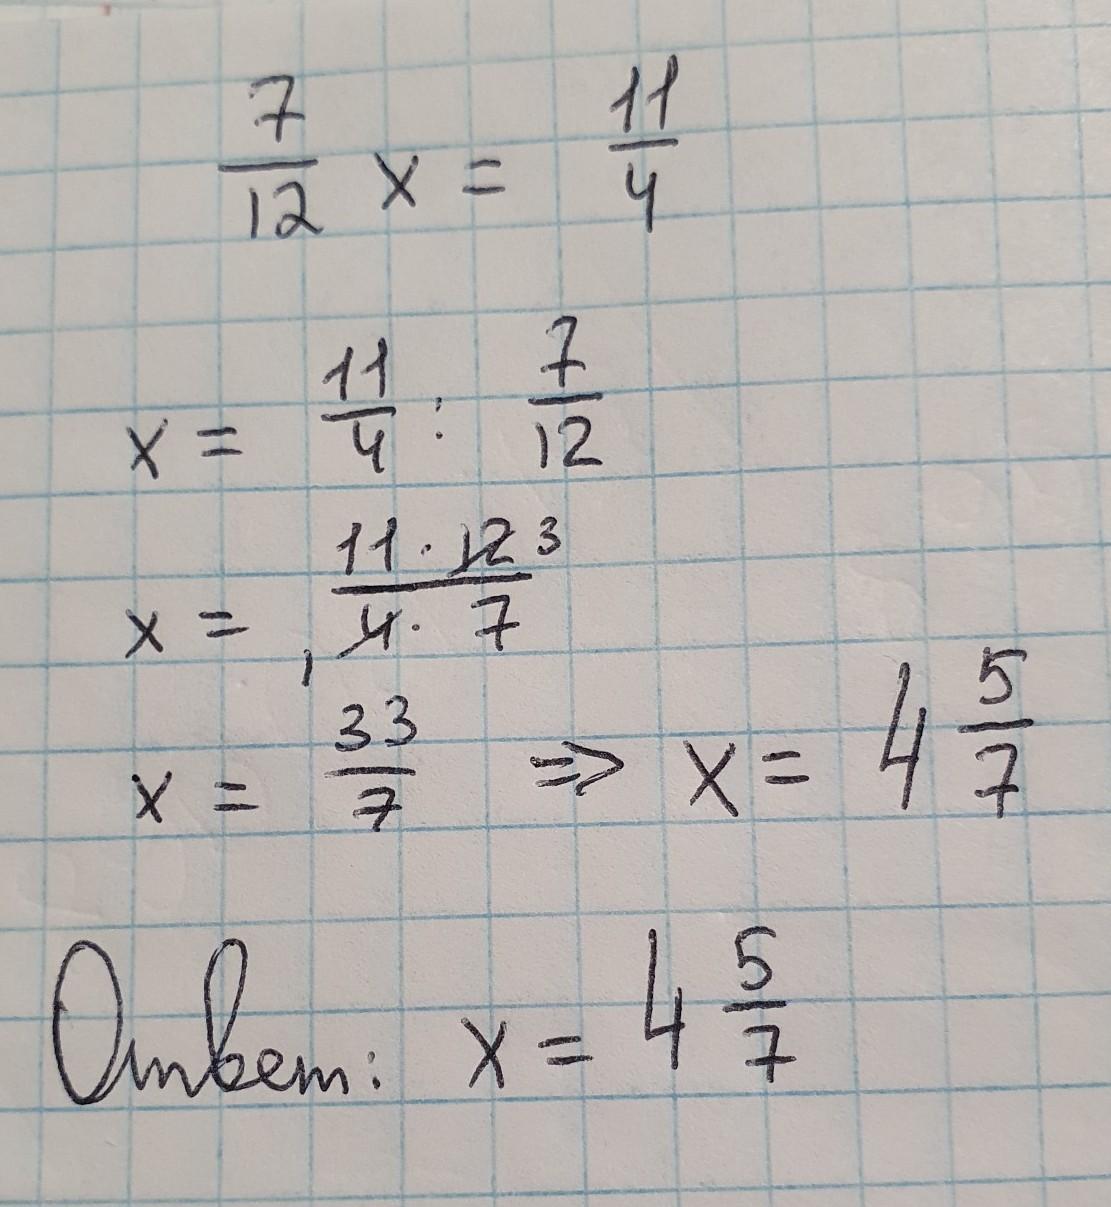 7/12 x = 11/4
x = 11/4 : 7/12
x = 11 · 12 3 / 1 4 · 7
x = 33/7 => x = 4 5/7
Ответ: x = 4 5/7